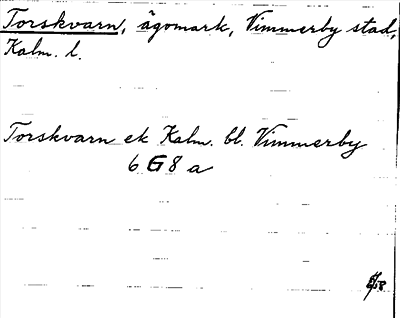 Torskvarn, ägomark, Vimmerby stad,
Kalm. l.
Torskvarn ek Kalm. bl. Vimmerby
6 G 8 a